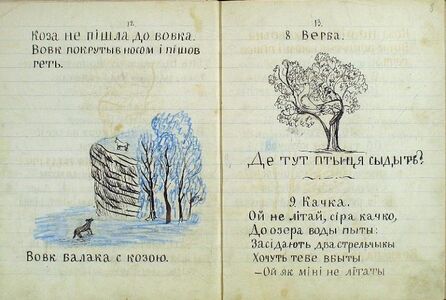 12.
Коза не пішла до вовка.
Вовк покрутыв носом і пішов
геть.
Вовк балака с козою.
13.
8 Верба.
Де тут птыця сыдыть?
9 Качка.
Ой не літай, сіра качко,
До озера воды пыты:
Засідають два стрельчыкы
Хочуть тебе вбыты
— Ой як міні не літаты